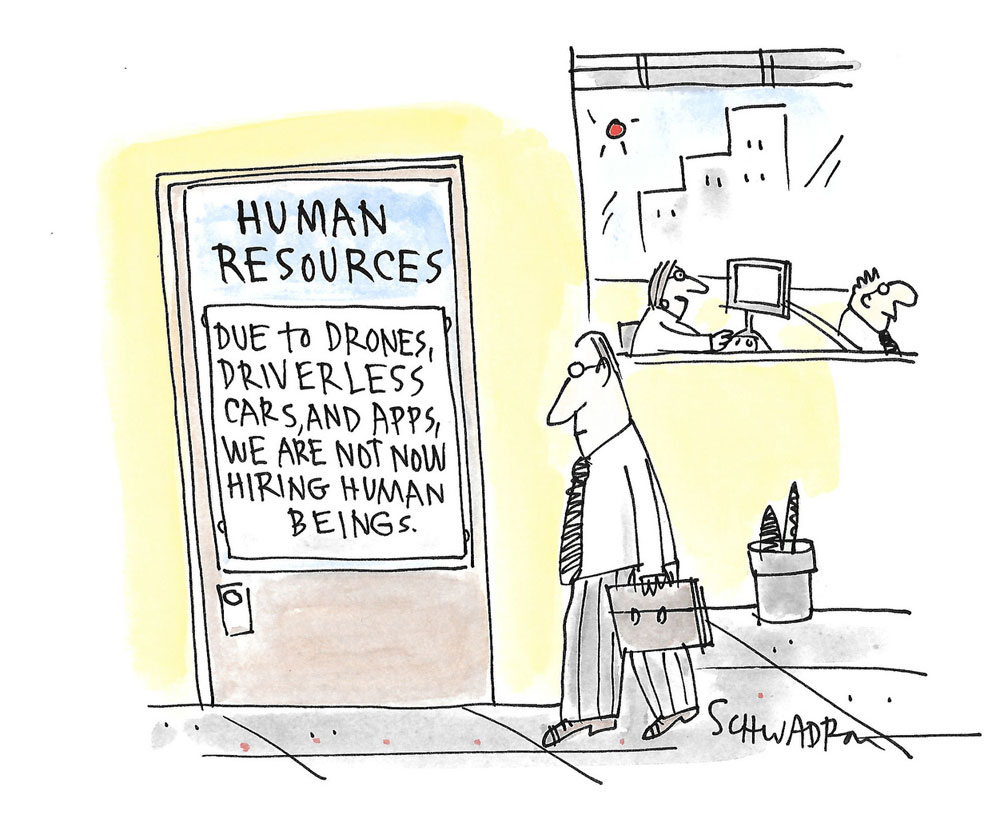 HUMAN
RESOURCES
DUE to DRONES,
DRIVERLESS
CARS, AND APPS,
WE ARE NOT NOW
HIRING HUMAN
BEINGS.
SCHWADRON